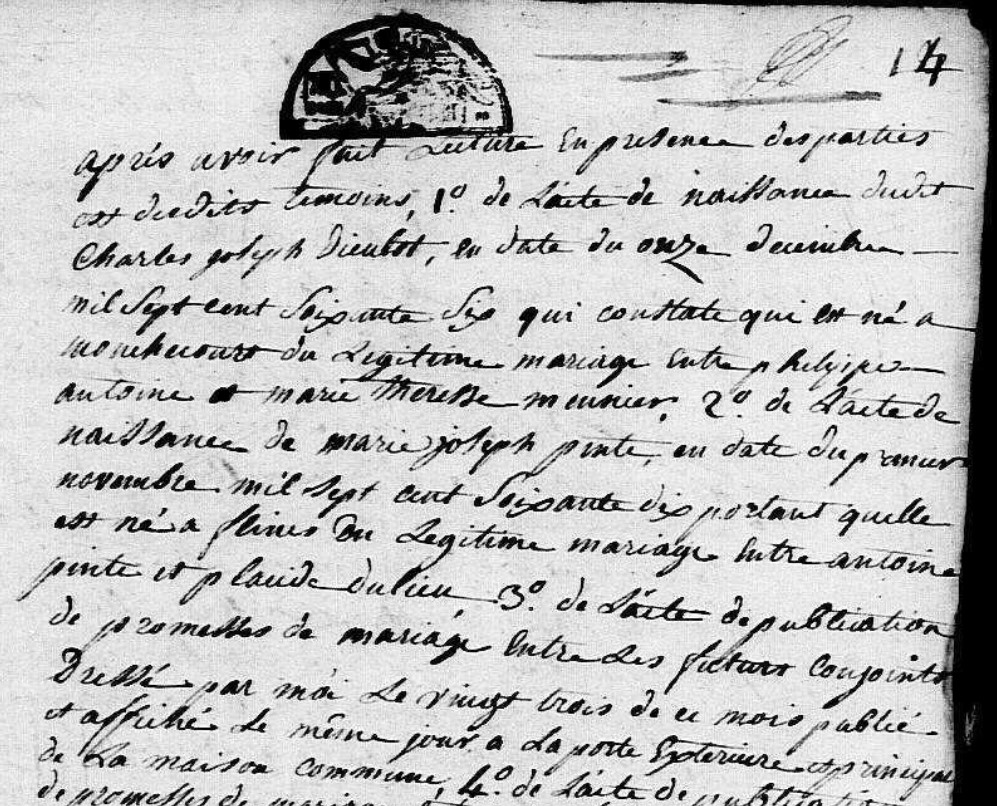 14
aprés avoir fait Lecture En presence des parties
et desdits temoins, 1º. de L'acte de naissance dudit
Charles joseph Dieubot, en date du onze decembre
mil Sept cent Soixante Six qui constate qui est né a
monchecourt du Legitime mariage Entre phelippe
antoine et marie theresse meunier, 2º. de L'acte de
naissance de marie joseph pinte, en date du premier
novembre mil Sept cent Soixante dix portant quelle
est né a flines Du Legitime mariage Entre antoine
pinte et placide dulieu, 3º. de L'acte de publication
de promesses de mariage Entre Les futurs Conjoints
Dressé par moi Le vingt trois de ce mois publié
et affiché Le même jour a La porte Exterieure et principal
de La maison commune, 4º. de L'acte de publication
de promesses de mariage